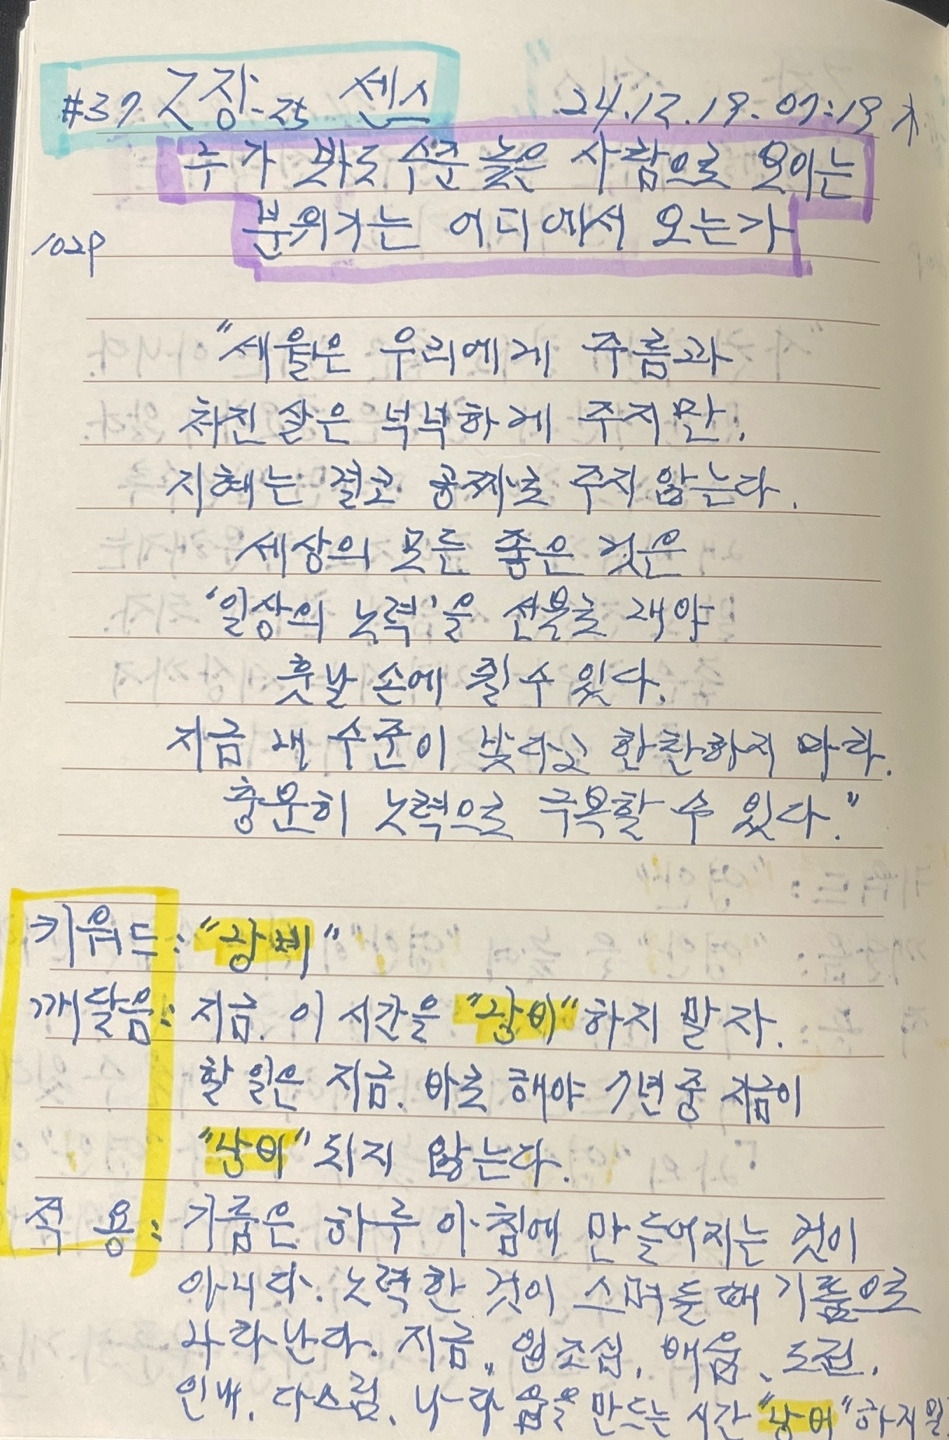 #37 긍정적 센스 24.12.19.07:19 木
누가 봐도 수준 높은 사람으로 보이는
분위기는 어디에서 오는가
102P
"세월은 우리에게 주름과
처진 살은 넉넉하게 주지만,
지혜는 결코 공짜로 주지 않는다.
세상의 모든 좋은 것은
'일상의 노력'을 선물로 줘야
훗날 손에 쥘 수 있다.
지금 내 수준이 낮다고 한탄하지 마라.
충분히 노력으로 극복할 수 있다."
키워드 : "낭비"
깨달음 : 지금. 이 시간을 "낭비"하지 말자.
할 일은 지금. 바로 해야 7년 중 지금이
"낭비" 되지 않는다.
적 용 : 기품은 하루 아침에 만들어지는 것이
아니다. 노력한 것이 스며들 때 기품으로
나타난다. 지금, 배움, 도전,
인내, 다스림, 만드는 시간 "낭비"하지 말